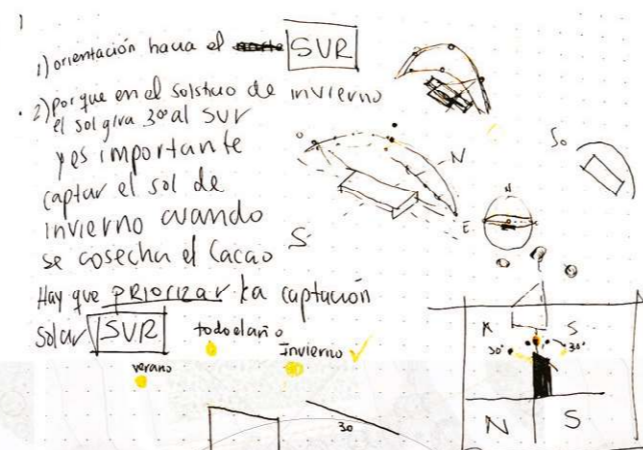 1
1) orientación hacia el norte SUR
2) porque en el solsticio de invierno
el sol gira 30° al SUR
y es importante
captar el sol de
invierno cuando
se cosecha el cacao
Hay que PRIORIZAR la captación
solar SUR
todo el año
Invierno
verano
N
S
E
So
N
S
30°
30°
N
S
30